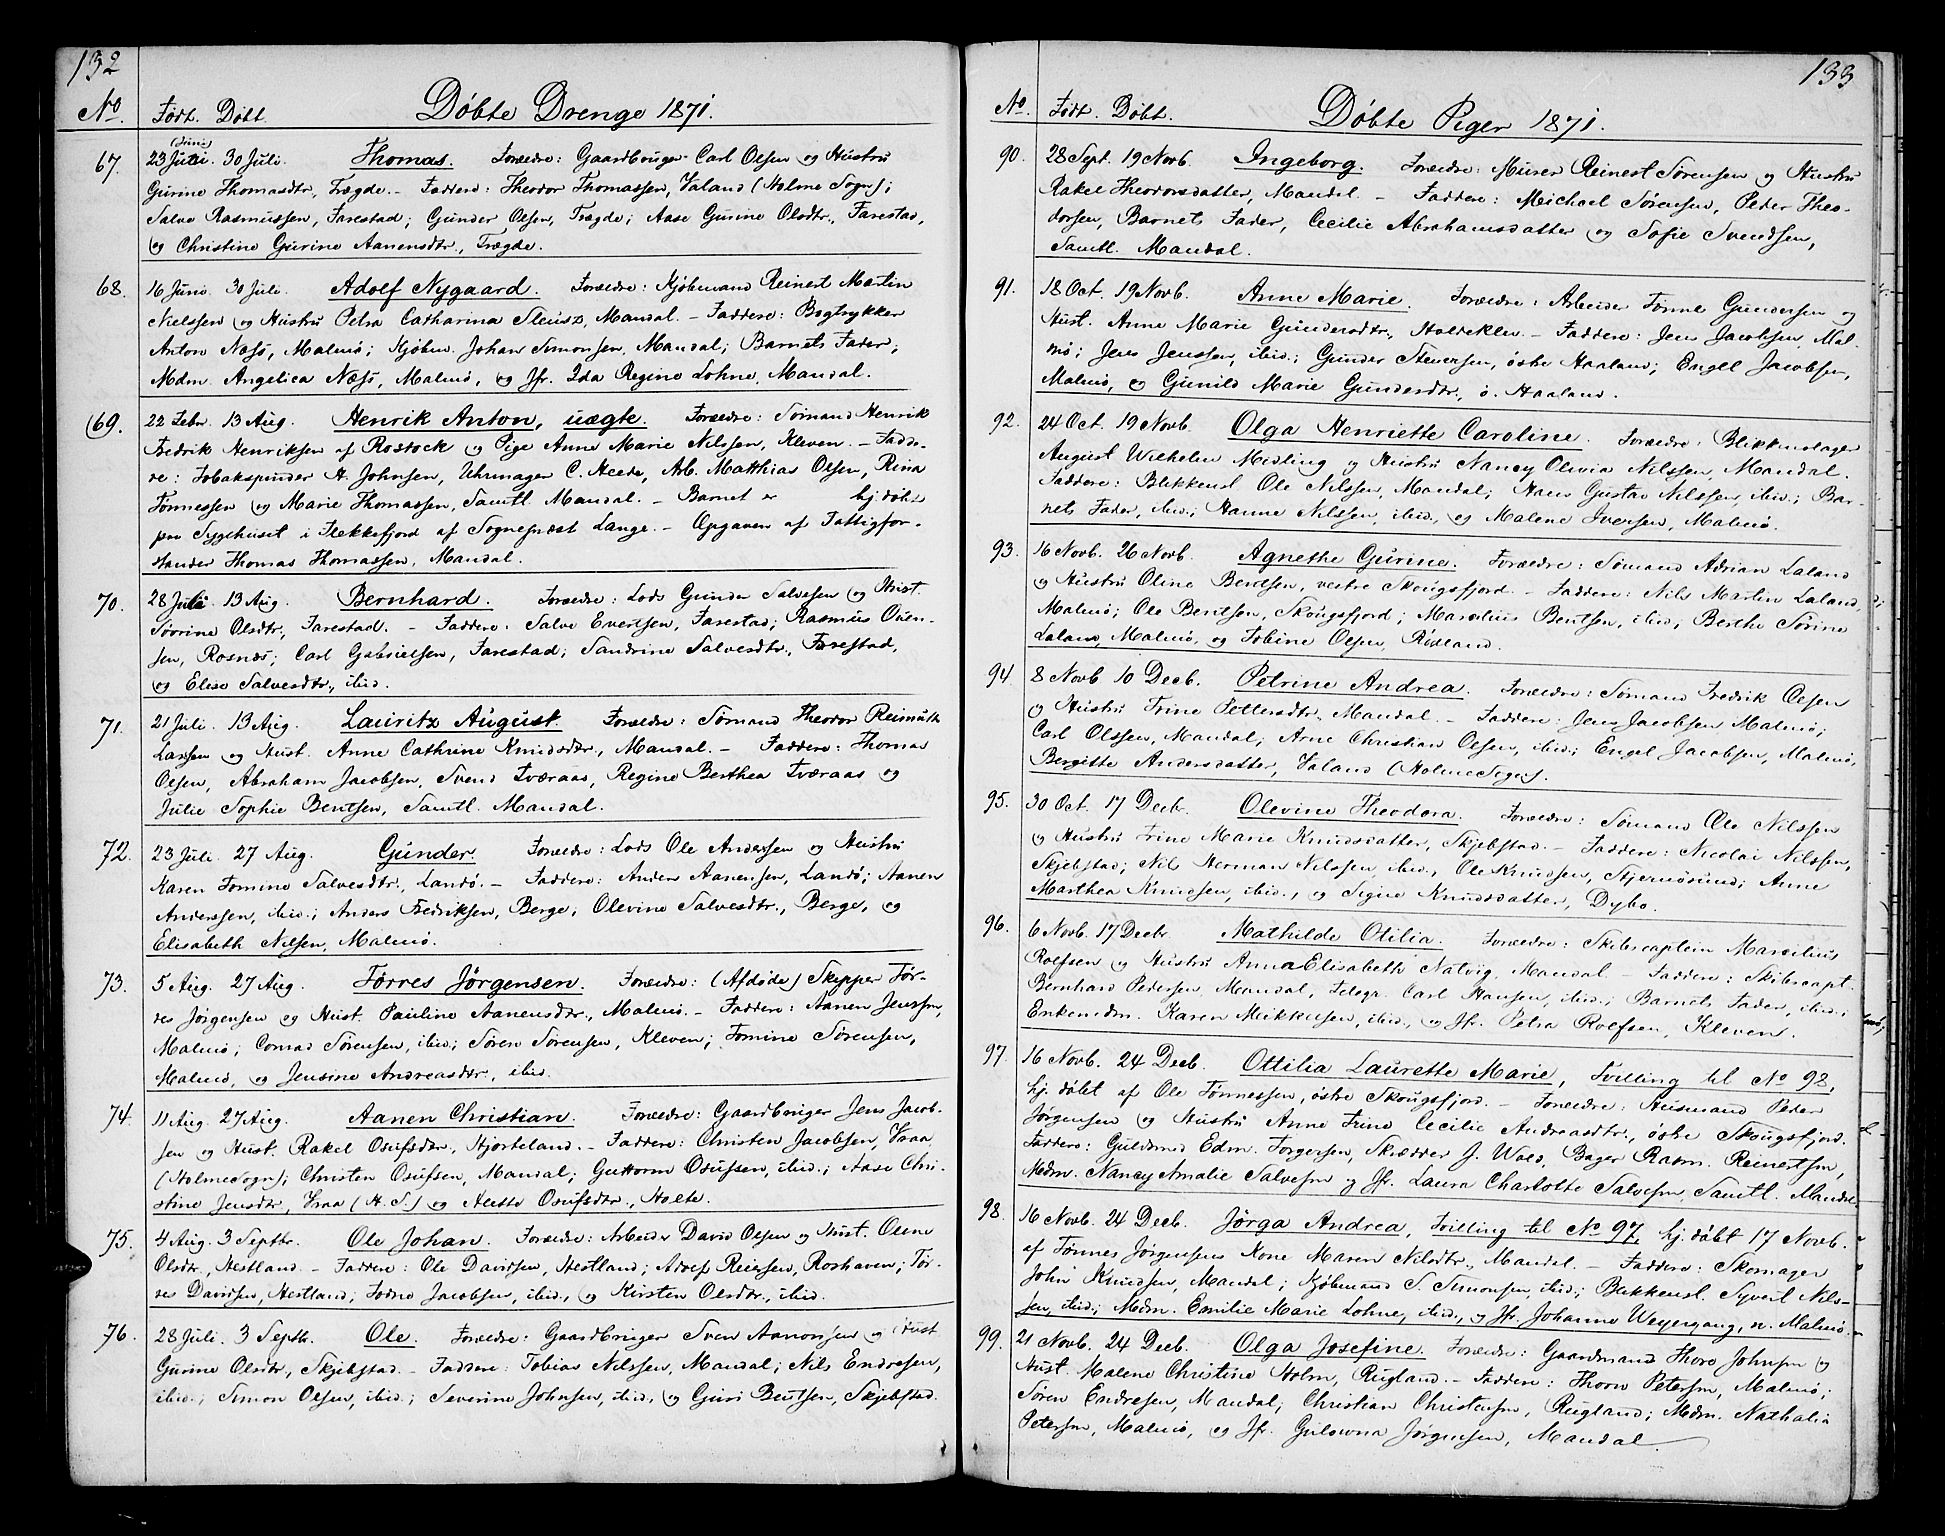 132
No. Født. Døbt. Døbte Drenge 1871.
67. 23 Juli (Juni) 30 Juli. Thomas. Forældre: Gaardbruger Carl Olsen og Hustru
Gurine Thomasdtr, Trægde. – Faddere: Theodor Thomassen, Valand (Holme Sogn);
Salve Rasmussen, Farestad; Gunder Olsen, Trægde; Aase Gurine Olsdtr., Farestad,
og Christine Gurine Aanensdtr., Trægde.
68. 16 Juni. 30 Juli. Adolf Nygaard. Forældre: Kjøbmand Reinert Martin
Nielssen og Hustru Petra Catharina Mandal. – Faddere: Bogtrykker
Anton Næss, Malmø; Kjøbm. Johan Simonsen, Mandal; Barnets Fader;
Mdm. Angelica Næss, Malmø, og Jfr. Ida Regine Lohne, Mandal.
69. 22 Febr. 13 Aug. Henrik Anton, uægte. Forældre: Sømand Henrik
Fredrik Henriksen af Rostock og Pige Anne Marie Nilssen, Kleven. – Fadde-
re: Tobakspinder H. Johnsen, Uhrmager C. Arb. Matthias Olsen, Rina
Tønnessen og Marie Thomassen, Samtl. Mandal. – Barnet er hj. døbt
paa Sygehuset i Flekkefjord af Sognepræst Lange. – Opgaven af Fattigfor-
stander Thomas Thomassen, Mandal.
70. 28 Juli. 13 Aug. Bernhard. Forældre: Lods Gunder Salvesen og Hust.
Sørine Olsdtr., Farestad. – Faddere: Salve Evertsen, Farestad; Rasmus Ouen-
sen, Rosnæs; Carl Gabrielsen, Farestad; Sandrine Salvesdtr., Farestad,
og Elise Salvesdtr., ibid.
71. 21 Juli. 13 Aug. Lauritz August. Forældre: Sømand Theodor Reimuth
Larssen og Hust. Anne Cathrine Knudsdtr., Mandal. – Faddere: Thomas
Olsen, Abraham Jacobsen, Svend Tværaas, Regine Berthea Tværaas og
Julie Sophie Bentsen, Samtl. Mandal.
72. 23 Juli. 27 Aug. Gunder. Forældre: Lods Ole Andersen og Hustru
Karen Tomine Salvesdtr., Landø. – Faddere: Anders Aanensen, Landø; Aanen
Anderssen, ibid.; Anders Fredriksen, Berge; Olevine Salvesdtr., Berge, og
Elisabeth Nilsen, Malmø.
73. 5 Aug. 27 Aug. Tørres Jørgensen. Forældre: (Afdøde) Skipper Tør-
res Jørgensen og Hust. Pauline Aanensdtr., Malmø. – Faddere: Aanen Jenssen,
Malmø; Conrad Sørensen, ibid.; Søren Sørensen, Kleven; Tomine Sørensen,
Malmø, og Jensine Andreasdtr., ibid.
74. 11 Aug. 27 Aug. Aanen Christian. Forældre: Gaardbruger Jens Jacob-
sen og Hust. Rakel Osufsdtr., Hjorteland. – Faddere: Christen Jacobsen, Vraa
(Holme Sogn); Christen Osufsen, Mandal; Guttorm Osufsen, ibid.; Aase Chri-
stine Jensdtr., Vraa (H. S.) og Osufsdtr., Holte.
75. 4 Aug. 3 Septbr. Ole Johan. Forældre: Arbeider David Olsen og Hust. Olene
Olsdtr., Hestland. – Faddere: Ole Davidsen, Hestland; Adolf Reiersen, Roshaven; Tør-
res Davidsen, Hestland; Jacobsen, ibid., og Kirsten Olsdtr., ibid.
76. 28 Juli. 3 Septb. Ole. Forældre: Gaardbruger Sven Aanonsen og Hust.
Gurine Olsdtr., Skjebstad. – Faddere: Tobias Nilssen, Mandal; Nils Endresen,
ibid.; Simon Olsen, ibid.; Severine Johnsen, ibid., og Guri Bentsen, Skjebstad.
133
No. Født. Døbt. Døbte Piger 1871.
90. 28 Sept. 19 Novb. Ingeborg. Forældre: Murer Reinert Sørensen og Hustru
Rakel Theodorsdatter, Mandal. – Faddere: Michael Sørensen, Peder Theo-
dorsen, Barnets Fader, Cecilie Abrahamsdatter og Sofie Svendsen,
Samtl. Mandal.
91. 18 Oct. 19 Novb. Anne Marie. Forældre: Arbeider Tønne Gundersen og
Hust. Anne Marie Gundersdtr., Holteklev. – Faddere: Jens Jacobsen, Mal-
mø; Jens Jenssen, ibid.; Gunder Stevensen, østre Haaland; Engel Jacobsen,
Malmø, og Gunild Marie Gundersdtr., ø. Haaland.
92. 24 Oct. 19 Novb. Olga Henriette Caroline. Forældre: Blikkenslager
August Wilhelm Midling og Hustru Nancy Olivia Nilssen, Mandal.
Faddere: Blikkensl. Ole Nilssen, Mandal; Hans Gustav Nilssen, ibid.; Bar-
nets Fader, ibid.; Hanne Nilssen, ibid., og Malene Iversen, Malmø.
93. 16 Novb. 26 Novb. Agnethe Gurine. Forældre: Sømand Adrian Laland
og Hustru Oline Berntsen, vestre Skougsfjord. – Faddere: Nils Martin Laland,
Malmø; Ole Berntsen, Skougsfjord; Marcelius Bentsen, ibid.; Berthe Sørine
Laland, Malmø, og Tobine Olsen, Rødland.
94. 8 Novb. 10 Decb. Petrine Andrea. Forældre: Sømand Fredrik Olsen
og Hustru Trine Pettersdtr., Mandal. – Faddere: Jens Jacobsen Malmø;
Carl Olssen, Mandal; Arne Christian Olsen, ibid.; Engel Jacobsen, Malmø,
Bergitte Andersdatter, Valand (Holme Sogn).
95. 30 Oct. 17 Decb. Olevine Theodora. Forældre: Sømand Ole Nilssen
og Hustru Trine Marie Knudsdatter, Skjebstad. – Faddere: Nicolai Nilssen,
Skjebstad; Nils Herman Nilssen, ibid., Ole Knudsen, Stjernøsund; Anne
Marthea Knudsen, ibid., og Signe Knudsdatter, Dybo.
96. 6 Novb. 17 Decb. Mathilde Otilia. Forældre: Skibscaptein Marcelius
Rolfsen og Hustru Anna Elisabeth Natvig, Mandal. – Faddere: Skibscapt.
Bernhard Pedersen, Mandal, Telegr. Carl Hansen, ibid.; Barnets Fader, ibid.;
Enkemdm. Karen Mikkelsen, ibid., og Jfr. Petra Rolfsen, Kleven.
97. 16 Novb. 24 Decb. Ottilia Laurette Marie, Tvilling til No 98,
hj. døbt af Ole Tønnessen, østre Skougsfjord. – Forældre: Husmand Peder
Jørgensen og Hustru Anne Trine Cecilie Andreasdtr., østre Skougsfjord.
Faddere: Guldsmed Edm. Torgersen, Skrædder J. Wold, Bager Rasm. Reinertsen,
Mdm. Nancy Amalie Salvesen og Jfr. Laura Charlotte Salvesen, Samtl. Mandal.
98. 16 Novb. 24 Decb. Jørga Andrea, Tvilling til No 97, hj. døbt 17 Novb.
af Tønnes Jørgensens Kone Maren Nilsdtr., Mandal. – Faddere: Skomager
John Knudsen, Mandal; Kjøbmand S. Simonsen, ibid.; Blikkensl. Syvert Nils-
sen, ibid.; Mdm. Emilie Marie Lohne, ibid., og Jfr. Johanne Weyergang, n. Malmø.
99. 21 Novb. 24 Decb. Olga Josefine. Forældre: Gaardmand Thore Johnsen og
Hust. Malene Christine Holm, Rugland. – Faddere: Thorv Petersen, Malmø;
Søren Endresen, Mandal; Christian Christensen, Rugland; Mdm. Nathalia
Petersen, Malmø, og Jfr. Gulovna Jørgensen, Mandal.